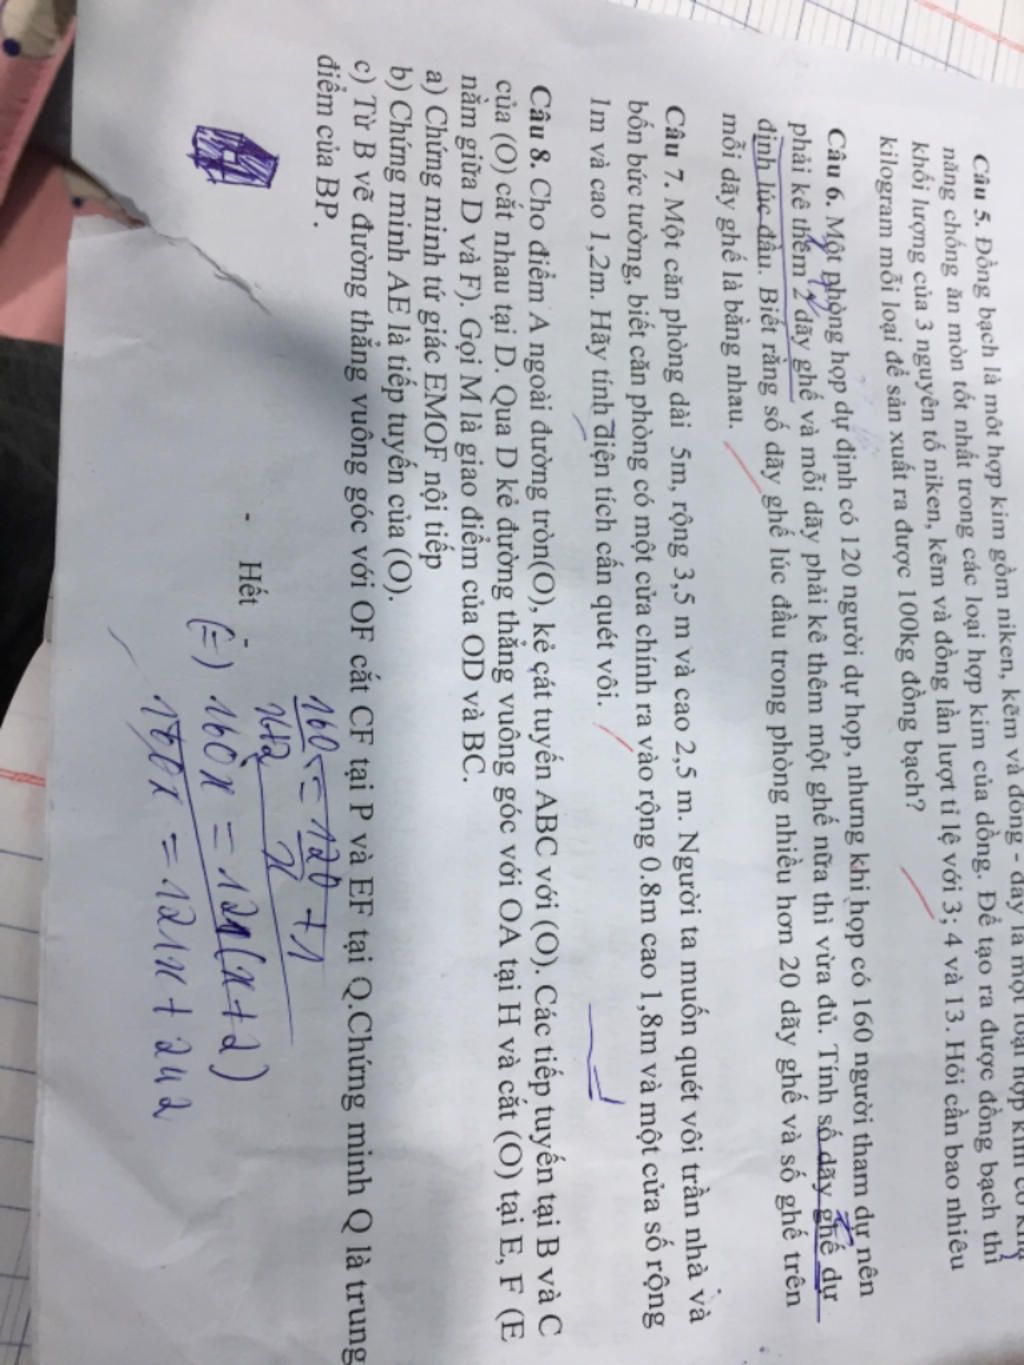 Câu 5. Đồng bạch là một hợp kim gồm niken, kẽm và đồng - đây là một loại hợp kim có khả
năng chống ăn mòn tốt nhất trong các loại hợp kim của đồng. Để tạo ra được đồng bạch thì
khối lượng của 3 nguyên tố niken, kẽm và đồng lần lượt tỉ lệ với 3; 4 và 13. Hỏi cần bao nhiêu
kilogram mỗi loại để sản xuất ra được 100kg đồng bạch?
Câu 6. Một phòng họp dự định có 120 người dự họp, nhưng khi họp có 160 người tham dự nên
phải kê thêm 2 dãy ghế và mỗi dãy phải kê thêm một ghế nữa thì vừa đủ. Tính số dãy ghế dự
định lúc đầu. Biết rằng số dãy ghế lúc đầu trong phòng nhiều hơn 20 dãy ghế và số ghế trên
mỗi dãy ghế là bằng nhau.
Câu 7. Một căn phòng dài 5m, rộng 3,5 m và cao 2,5 m. Người ta muốn quét vôi trần nhà và
bốn bức tường, biết căn phòng có một cửa chính ra vào rộng 0.8m cao 1,8m và một cửa sổ rộng
1m và cao 1,2m. Hãy tính diện tích cần quét vôi.
Câu 8. Cho điểm A ngoài đường tròn(O), kẻ cát tuyến ABC với (O). Các tiếp tuyến tại B và C
của (O) cắt nhau tại D. Qua D kẻ đường thẳng vuông góc với OA tại H và cắt (O) tại E, F (E
nằm giữa D và F). Gọi M là giao điểm của OD và BC.
a) Chứng minh tứ giác EMOF nội tiếp
b) Chứng minh AE là tiếp tuyến của (O).
c) Từ B vẽ đường thẳng vuông góc với OF cắt CF tại P và EF tại Q.Chứng minh Q là trung
điểm của BP.
- Hết -
160 = 120 + 1
x+2 x
(=) 160x = 12x(x+2)
160x = 121x + 242